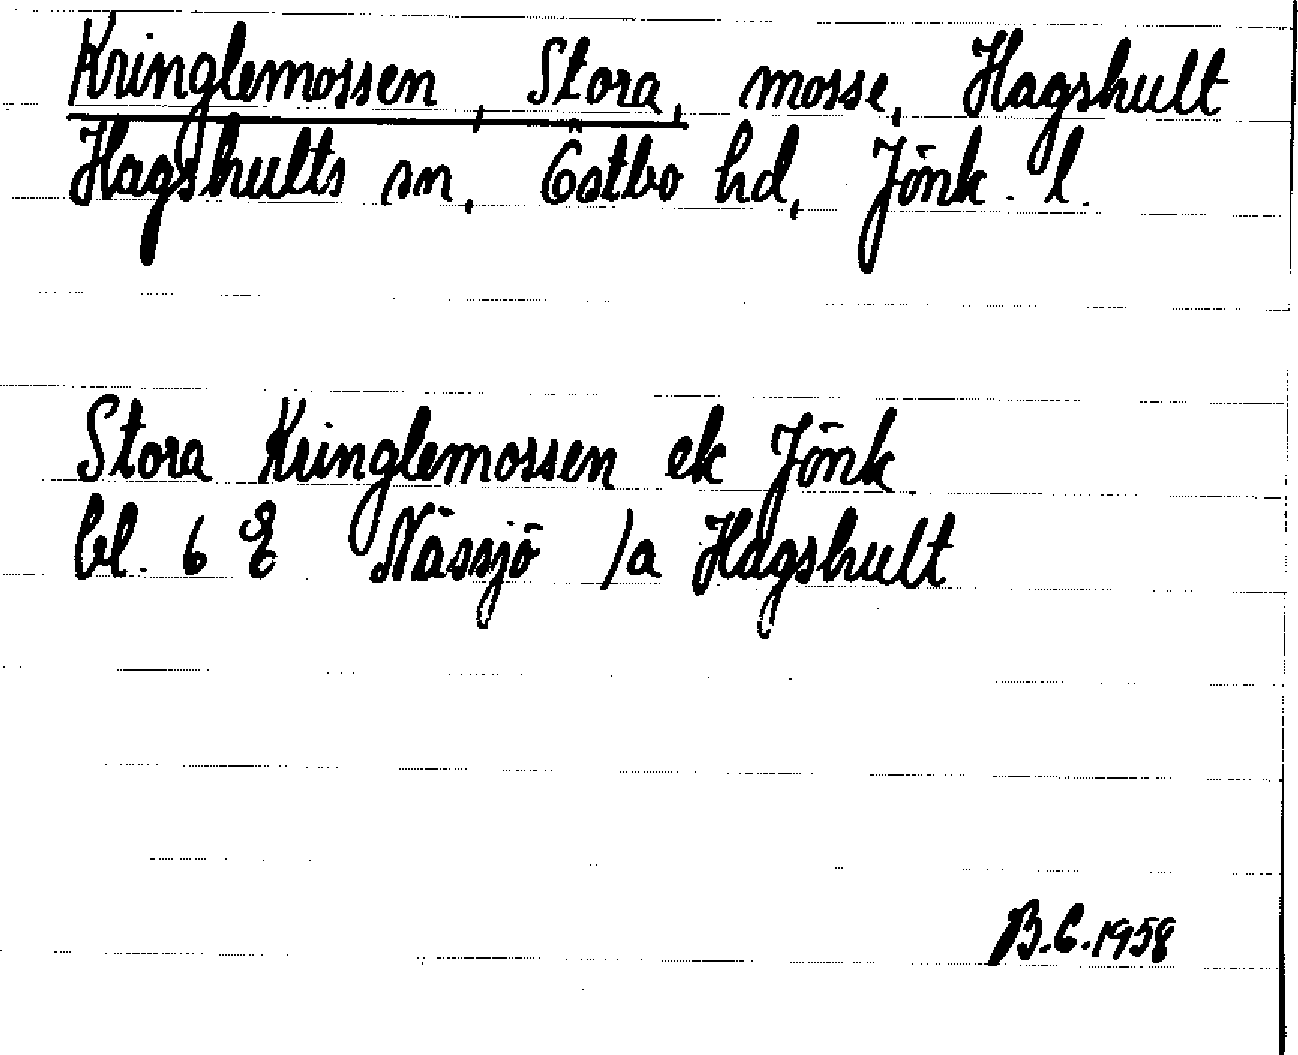 Kringlemossen, Stora, mosse, Hagshult
Hagshults sn, Östbo hd, Jönk. l.
Stora Kringlemossen ek Jönk
bl. 6 E Nässjö /a Hagshult
B.C.1958